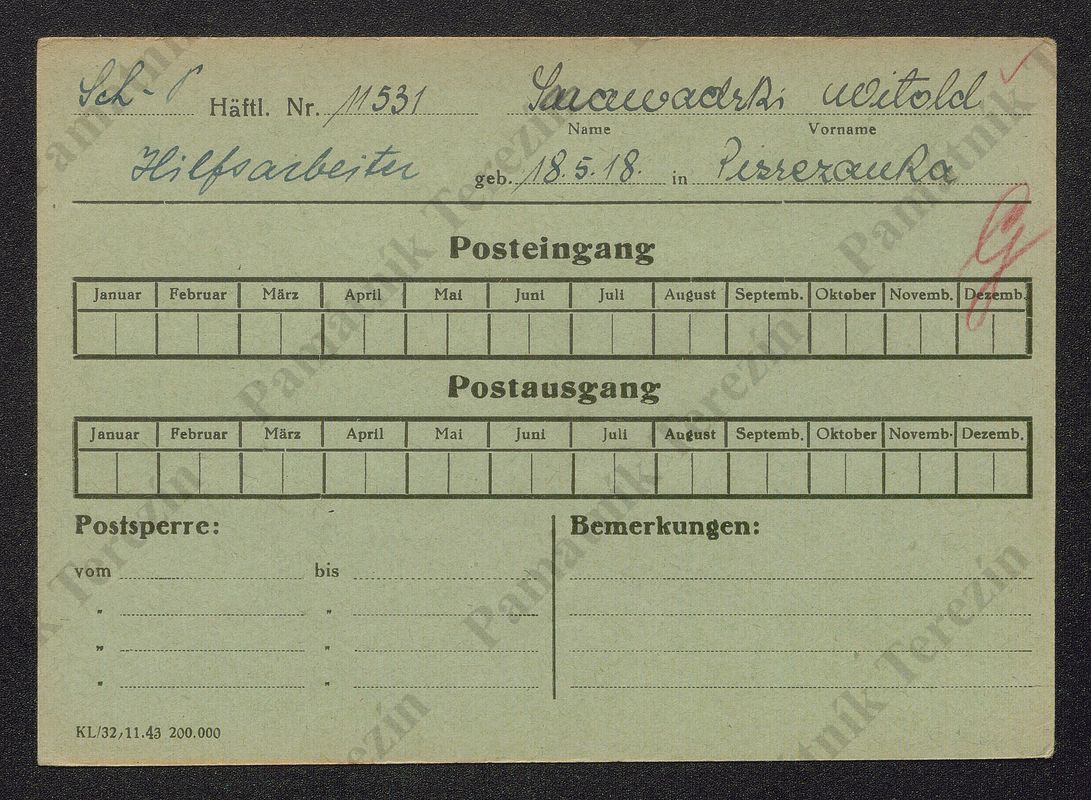 Sch- P Häftl. Nr. 11531 Witold
Name Vorname
Hilfsarbeiter geb. 18.5.18. in Piszczanka
Posteingang
Januar Februar März April Mai Juni Juli August Septemb. Oktober Novemb. Dezemb.
Postausgang
Januar Februar März April Mai Juni Juli August Septemb. Oktober Novemb. Dezemb.
Postsperre: Bemerkungen:
vom bis
" "
" "
" "
KL/32, 11.43 200.000
Památník Terezín